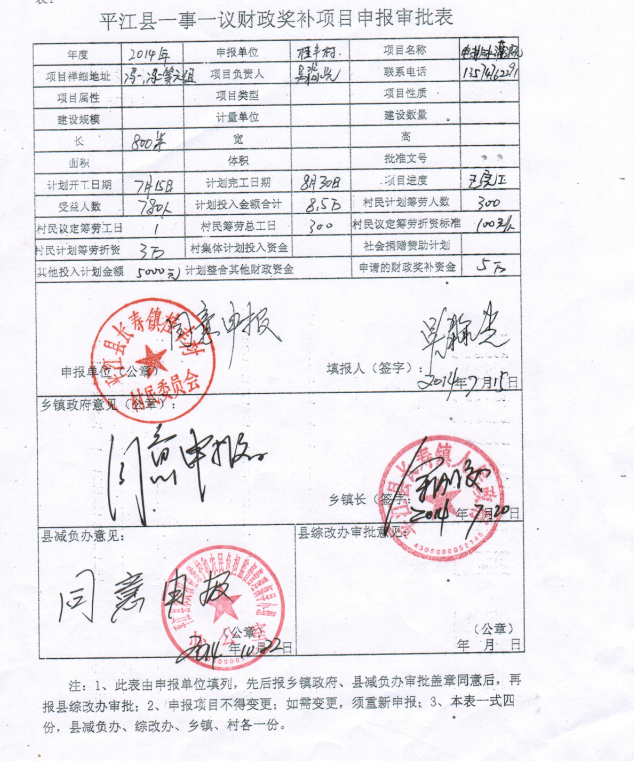 平江县一事一议财政奖补项目申报审批表
年度 2014年 申报单位 村 项目名称
项目祥细地址 项目负责人 联系电话
项目属性 项目类型 项目性质
建设规模 计量单位 建设数量
长 800米 宽 高
面积 体积 批准文号
计划开工日期 7月15日 计划完工日期 8月30日 项目进度 已完工
受益人数 780人 计划投入金额合计 8.5万 村民计划筹劳人数 300
村民议定筹劳工日 1 村民筹劳总工日 300 村民议定筹劳折资标准 100元/人
村民计划筹劳折资 3万 村集体计划投入资金 社会捐赠赞助计划
其他投入计划金额 5000元 计划整合其他财政资金 申请的财政奖补资金 5万
同意申报
平江县长寿镇 村
村民委员会
申报单位（公章） 填报人（签字）：
2014年7月15日
乡镇政府意见（签章）：
同意申报
平江县长寿镇人民政府
乡镇长（签字
2014年7月20日
县减负办意见： 县综改办审批意见：
同意申报
办公室
（公章） （公章）
2014年10月22日 年 月 日
注：1、此表由申报单位填列，先后报乡镇政府、县减负办审批盖章同意后，再
报县综改办审批；2、申报项目不得变更；如需变更，须重新申报；3、本表一式四
份，县减负办、综改办、乡镇、村各一份。